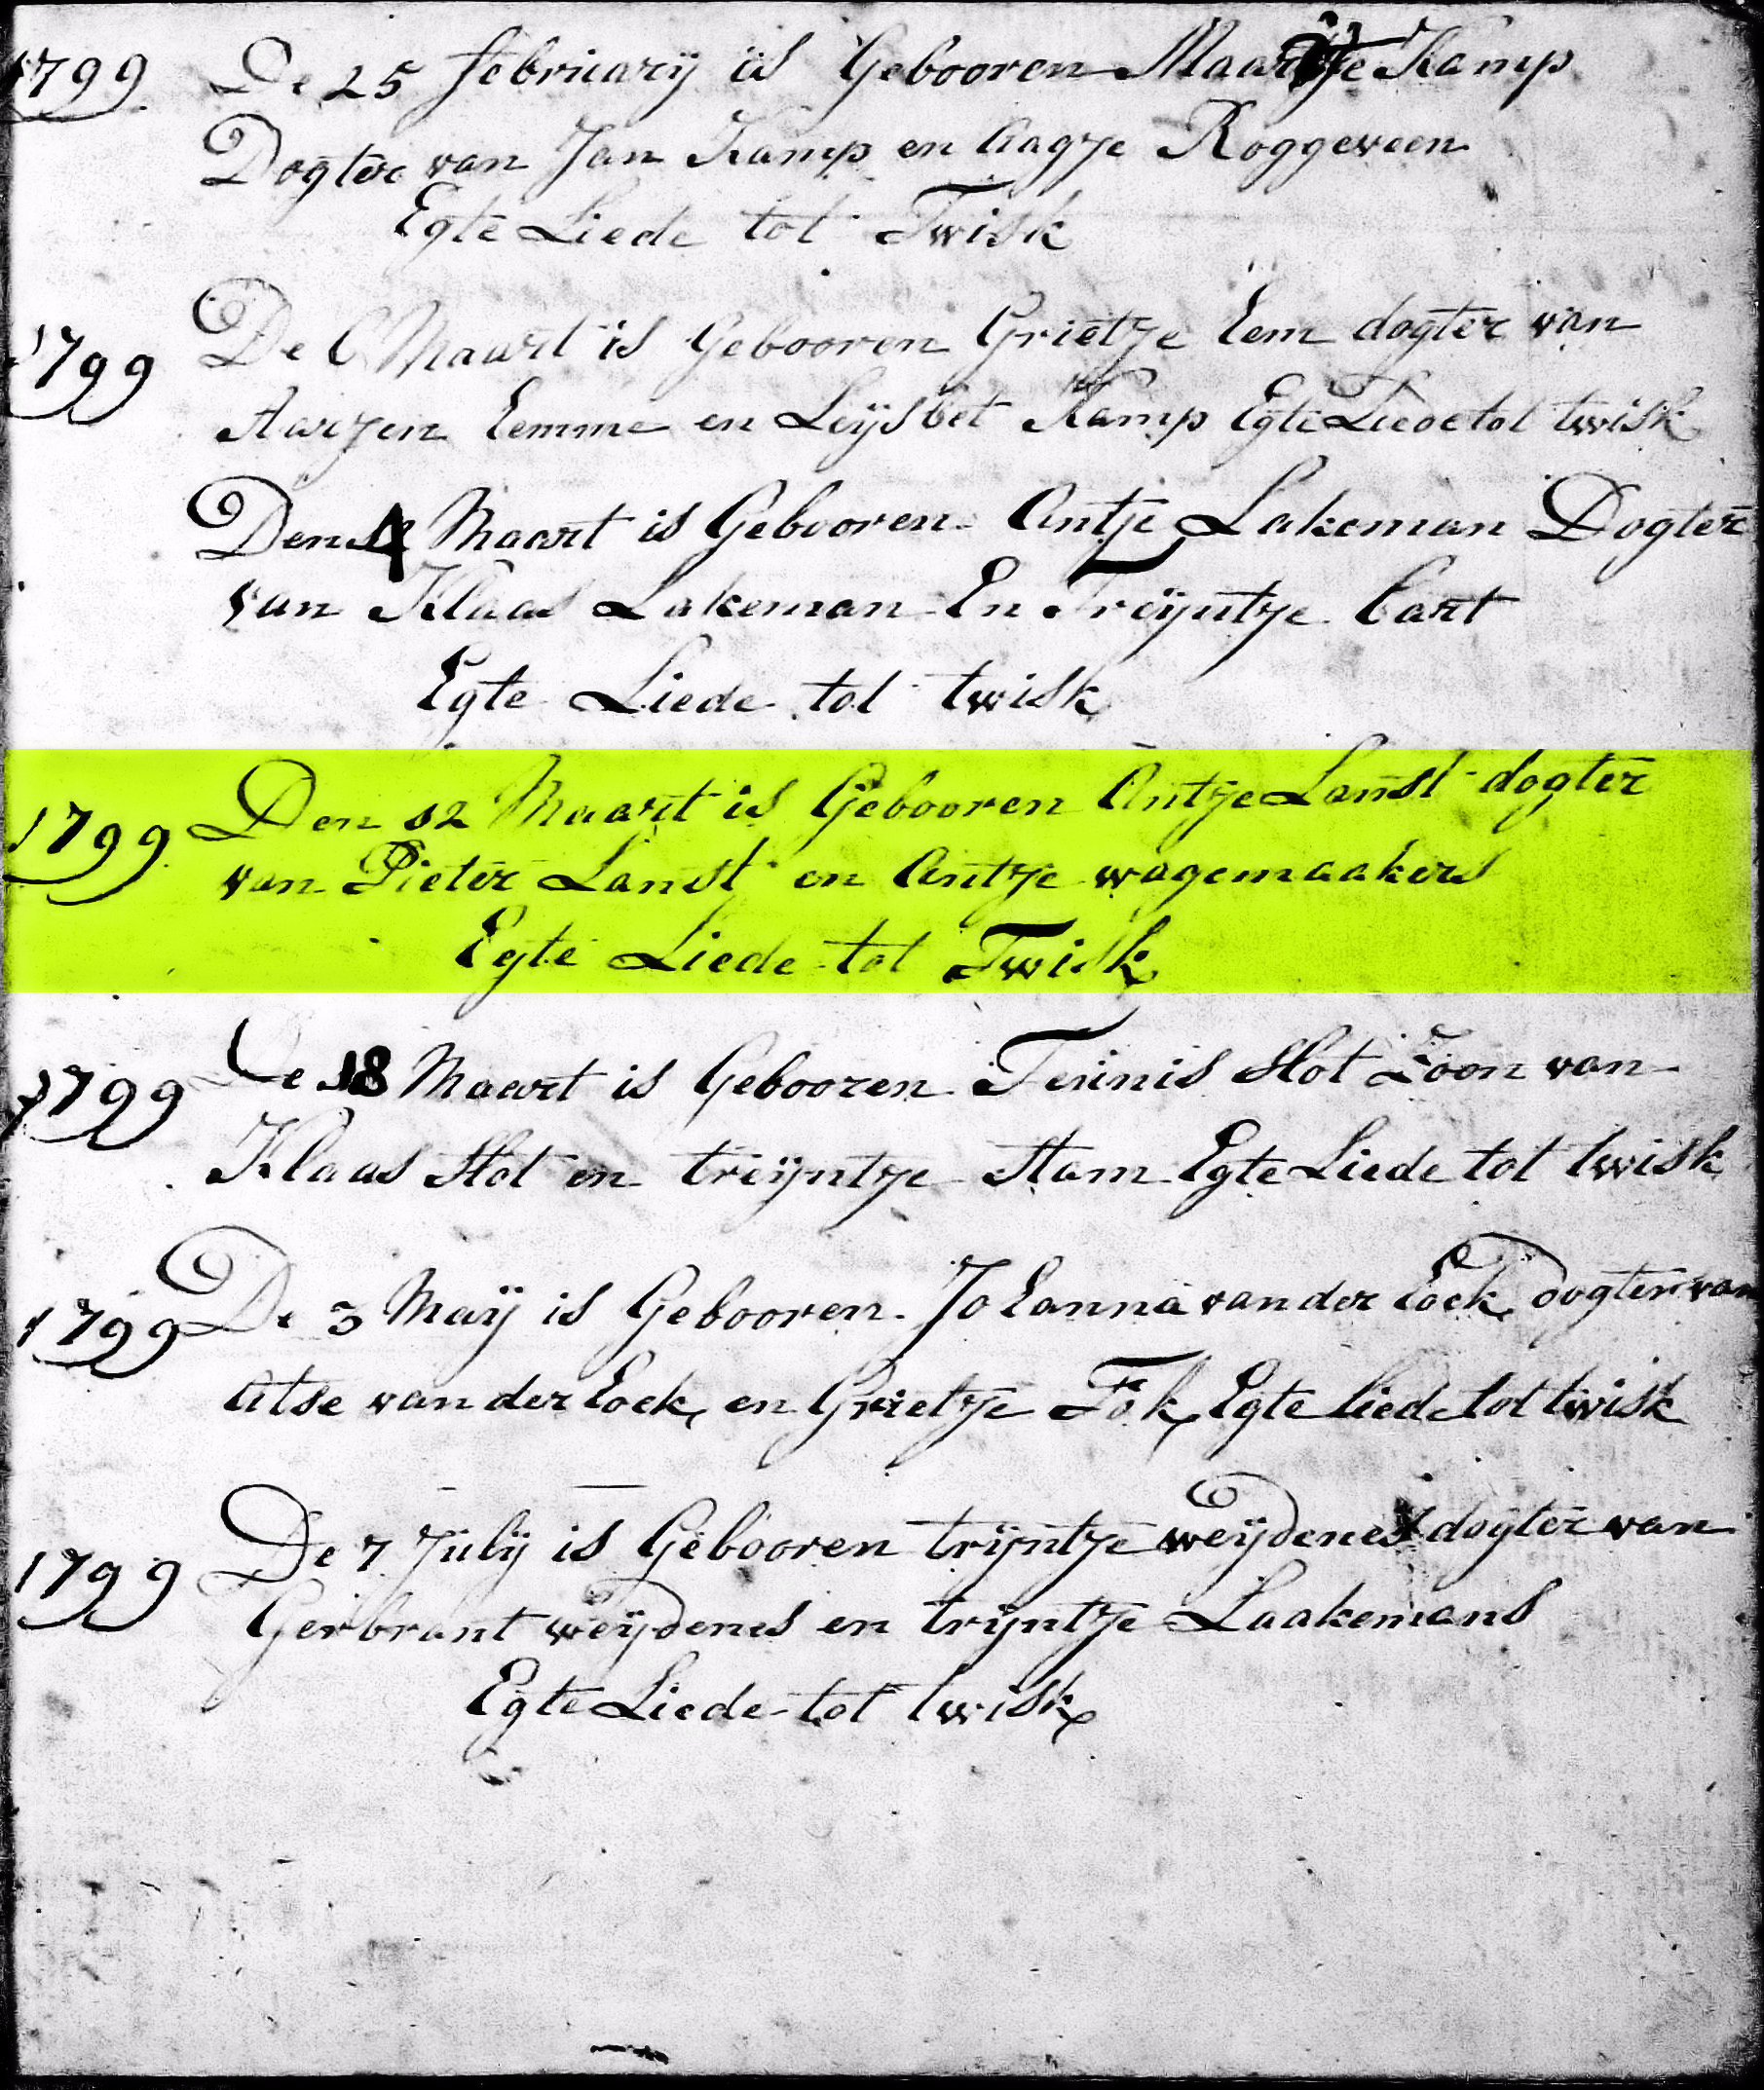 1799 De 25 february is Gebooren Maartje Kamp
Dogter van Jan Kamp en Aagje Roggeveen
Egte Liede tot Twisk
1799 De 6 Maart is Gebooren Grietje Eem dogter van
Aarjen Eemme en Leijsbet Kamp Egte Liede tot twisk
Den 4 Maart is Gebooren Antje Lakeman Dogter
van Klaas Lakeman En Treijntje Cart
Egte Liede tot twisk
1799 Den 12 Maart is Gebooren Antje Lanst dogter
van Pieter Lanst en Antje wagemaakers
Egte Liede tot Twisk
1799 De 18 Maart is Gebooren Teunis Slot Zoon van
Klaas Slot en treijntje Stam Egte Liede tot twisk
1799 De 3 Maij is Gebooren Johanna van der Hoek dogter van
Atse van der Hoek en Grietje Fok Egte liede tot twisk
1799 De 7 Julij is Gebooren trijntje weijdenes dogter van
Gerbrant weijdenes en trijntje Laakemans
Egte Liede tot twisk